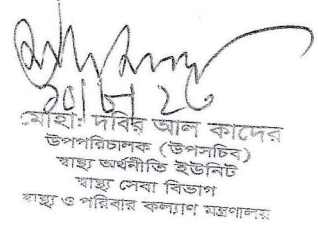 মোহাঃ দবির আল কাদের
উপপরিচালক (উপসচিব)
স্বাস্থ্য অর্থনীতি ইউনিট
স্বাস্থ্য সেবা বিভাগ
স্বাস্থ্য ও পরিবার কল্যাণ মন্ত্রণালয়